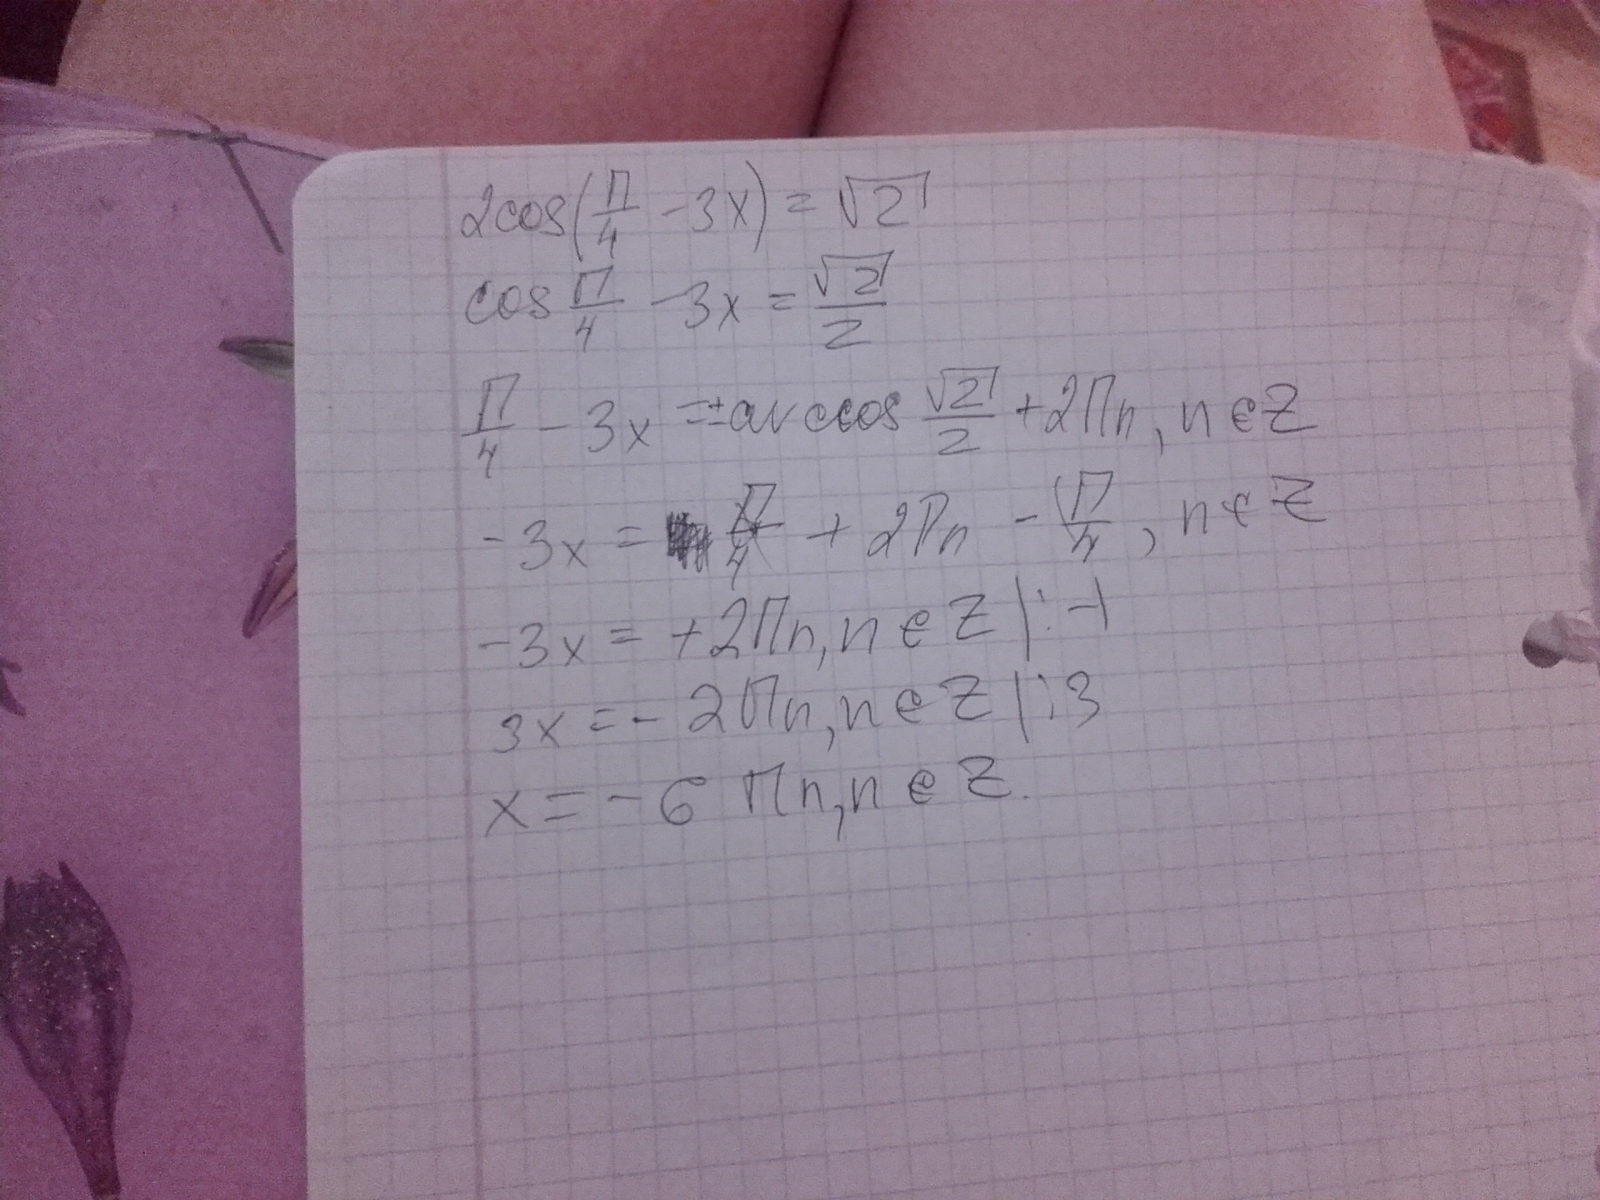 2cos(П/4 - 3x) = √2
cos П/4 - 3x = √2/2
П/4 - 3x = ± arccos √2/2 + 2Пn, n ∈ Z
-3x = П/4 + 2Пn - П/4, n ∈ Z
-3x = +2Пn, n ∈ Z | : -1
3x = - 2Пn, n ∈ Z | : 3
x = - 6 Пn, n ∈ Z.